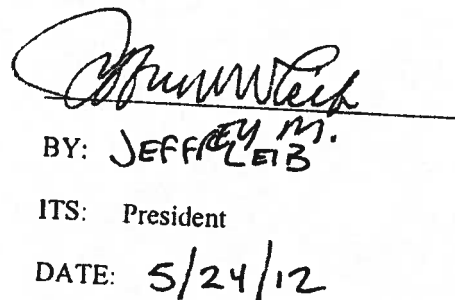 BY: JEFFREY M. LEIB
ITS: President
DATE: 5/24/12